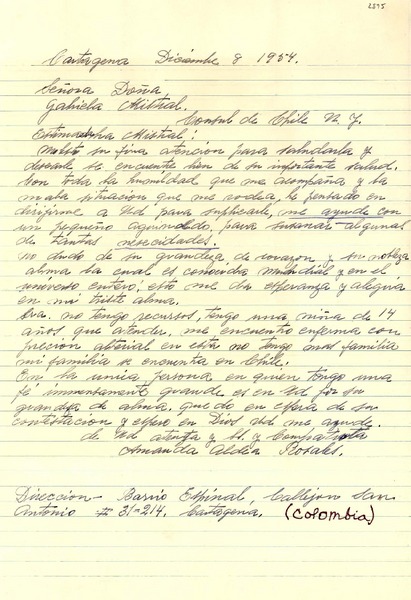 2575
Cartagena Diciembre 8 1954.
Señora Doña
Gabriela Mistral.
Consul de Chile N. Y.
Estimada Mistral:
su fina atencion para saludarla y
desearle se encuentre bien de su importante salud.
Con toda la humildad que me acompaña y la
mala situacion que me rodea, he pensado en
dirijirme a Ud para suplicarle, me ayude con
un pequeño aguinaldo, para subsanar algunas
de tantas necesidades.
no dudo de su grandeza, de corazon y su nobleza
alma la cual es conocida mundial y en el
universo entero; esto me da esperanza y alegria
en mi triste alma.
Sra. no tengo recursos, tengo una niña de 14
años que atender, me encuentro enferma con
precion alterial en esta no tengo mas familia
mi familia se encuentra en Chile.
Es la unica persona en quien tengo una
fé immensamente grande es en Ud por su
grandeza de alma, quedo en espera de su
contestacion y espero en Dios Ud me ayude.
de Ud atenta y ss. y Compatriota
Amanda Aldea Rosales.
Direccion- Barrio Espinal, Callejon San
Antonio # 31-214. Cartagena. (Colombia)